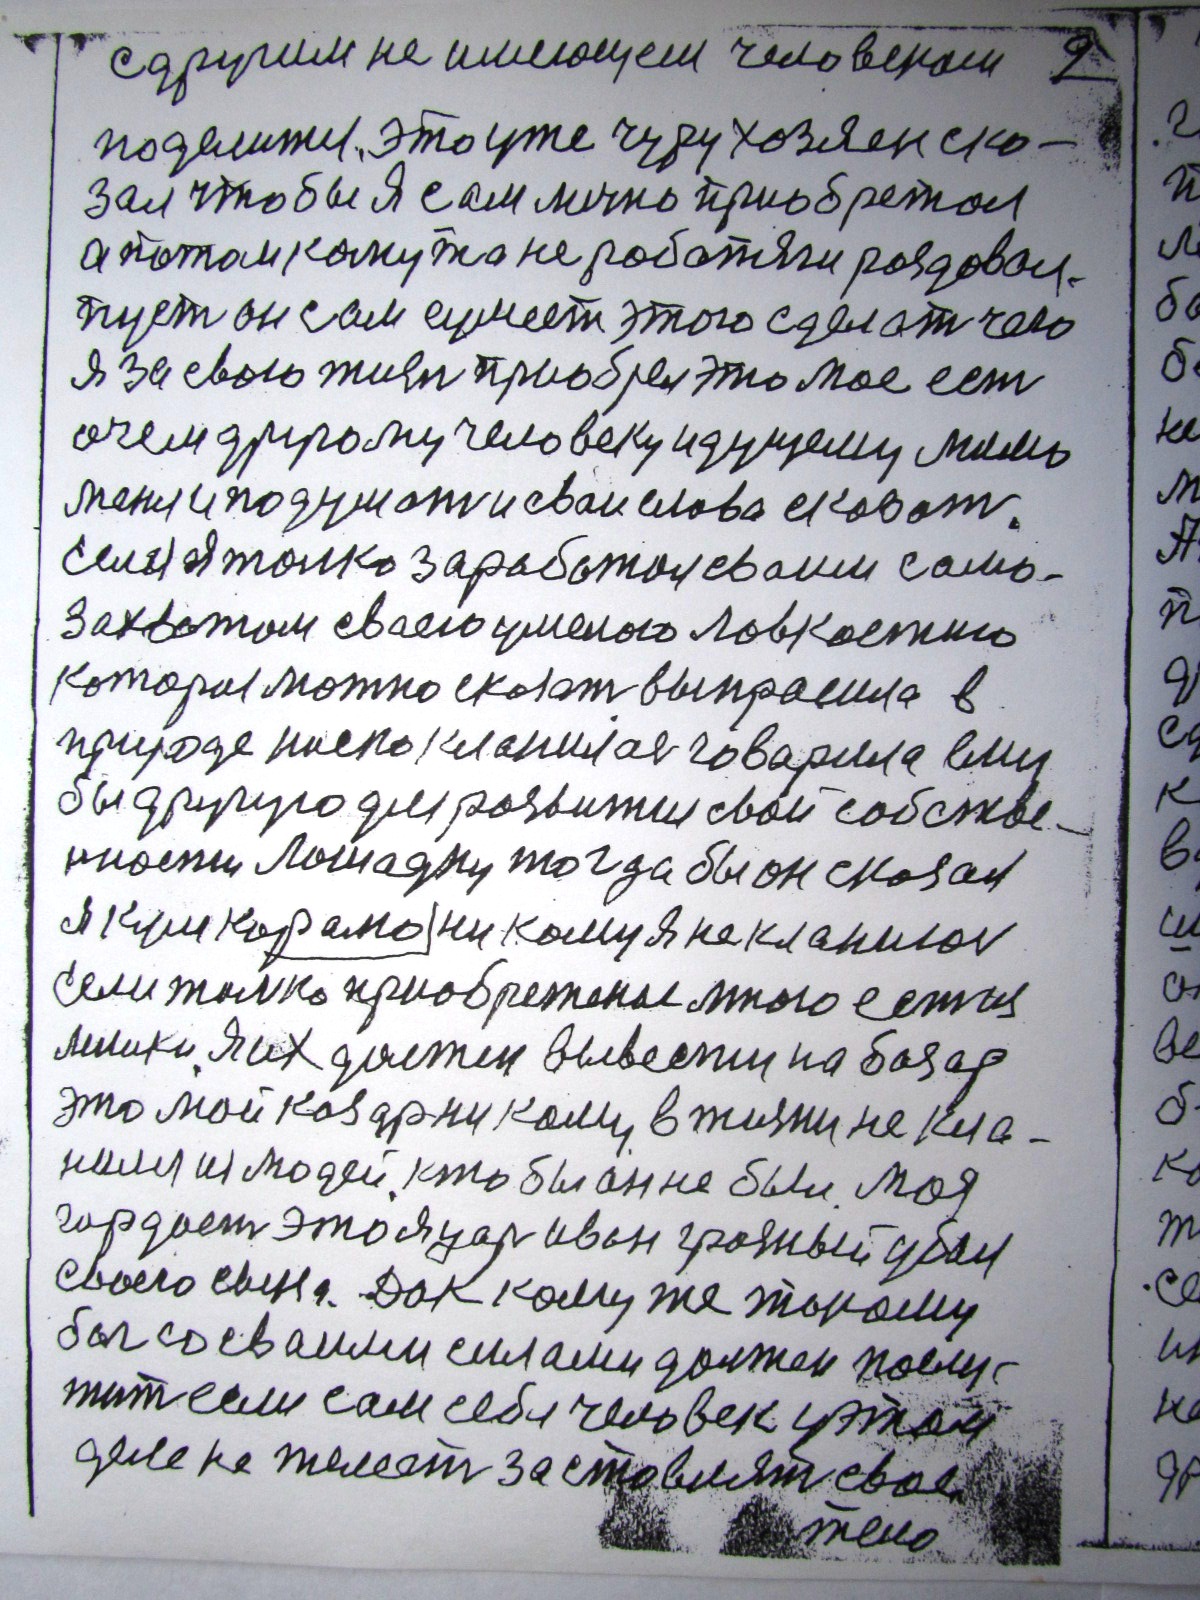 с другим не имеющем человеком 9
поделится. это уже чужу хозяен ско-
зал чтобы я сам лично приобретал
а потом кому та не роботяги роздовал.
пуст он сам сумеет этого сделат чего
я за свою жизн приобрел это мое ест
очем другому человеку идущему мимо
меня и подумат и сваи слова сказат.
Если я толко заработал сваим само-
захватом сваею умелою ловкостию
которы можно сказат выпрасила в
природе поклонилас говарила ему
бы другую для развития свой собстве-
нности лошадку тогда бы он сказал
я никому я не кланилос
Если толко приобретеные много ест
лишки. Я их должен вывести на базар
это мой козар никому в жизни не кла-
нился из людей. кто бы ан не были. моя
гордост это я цар иван грозный убил
своего сына. Дак кому же такому
бог со сваими силами должен послу-
жит если сам себя человек у этом
деле не желает заставлят свое
тело